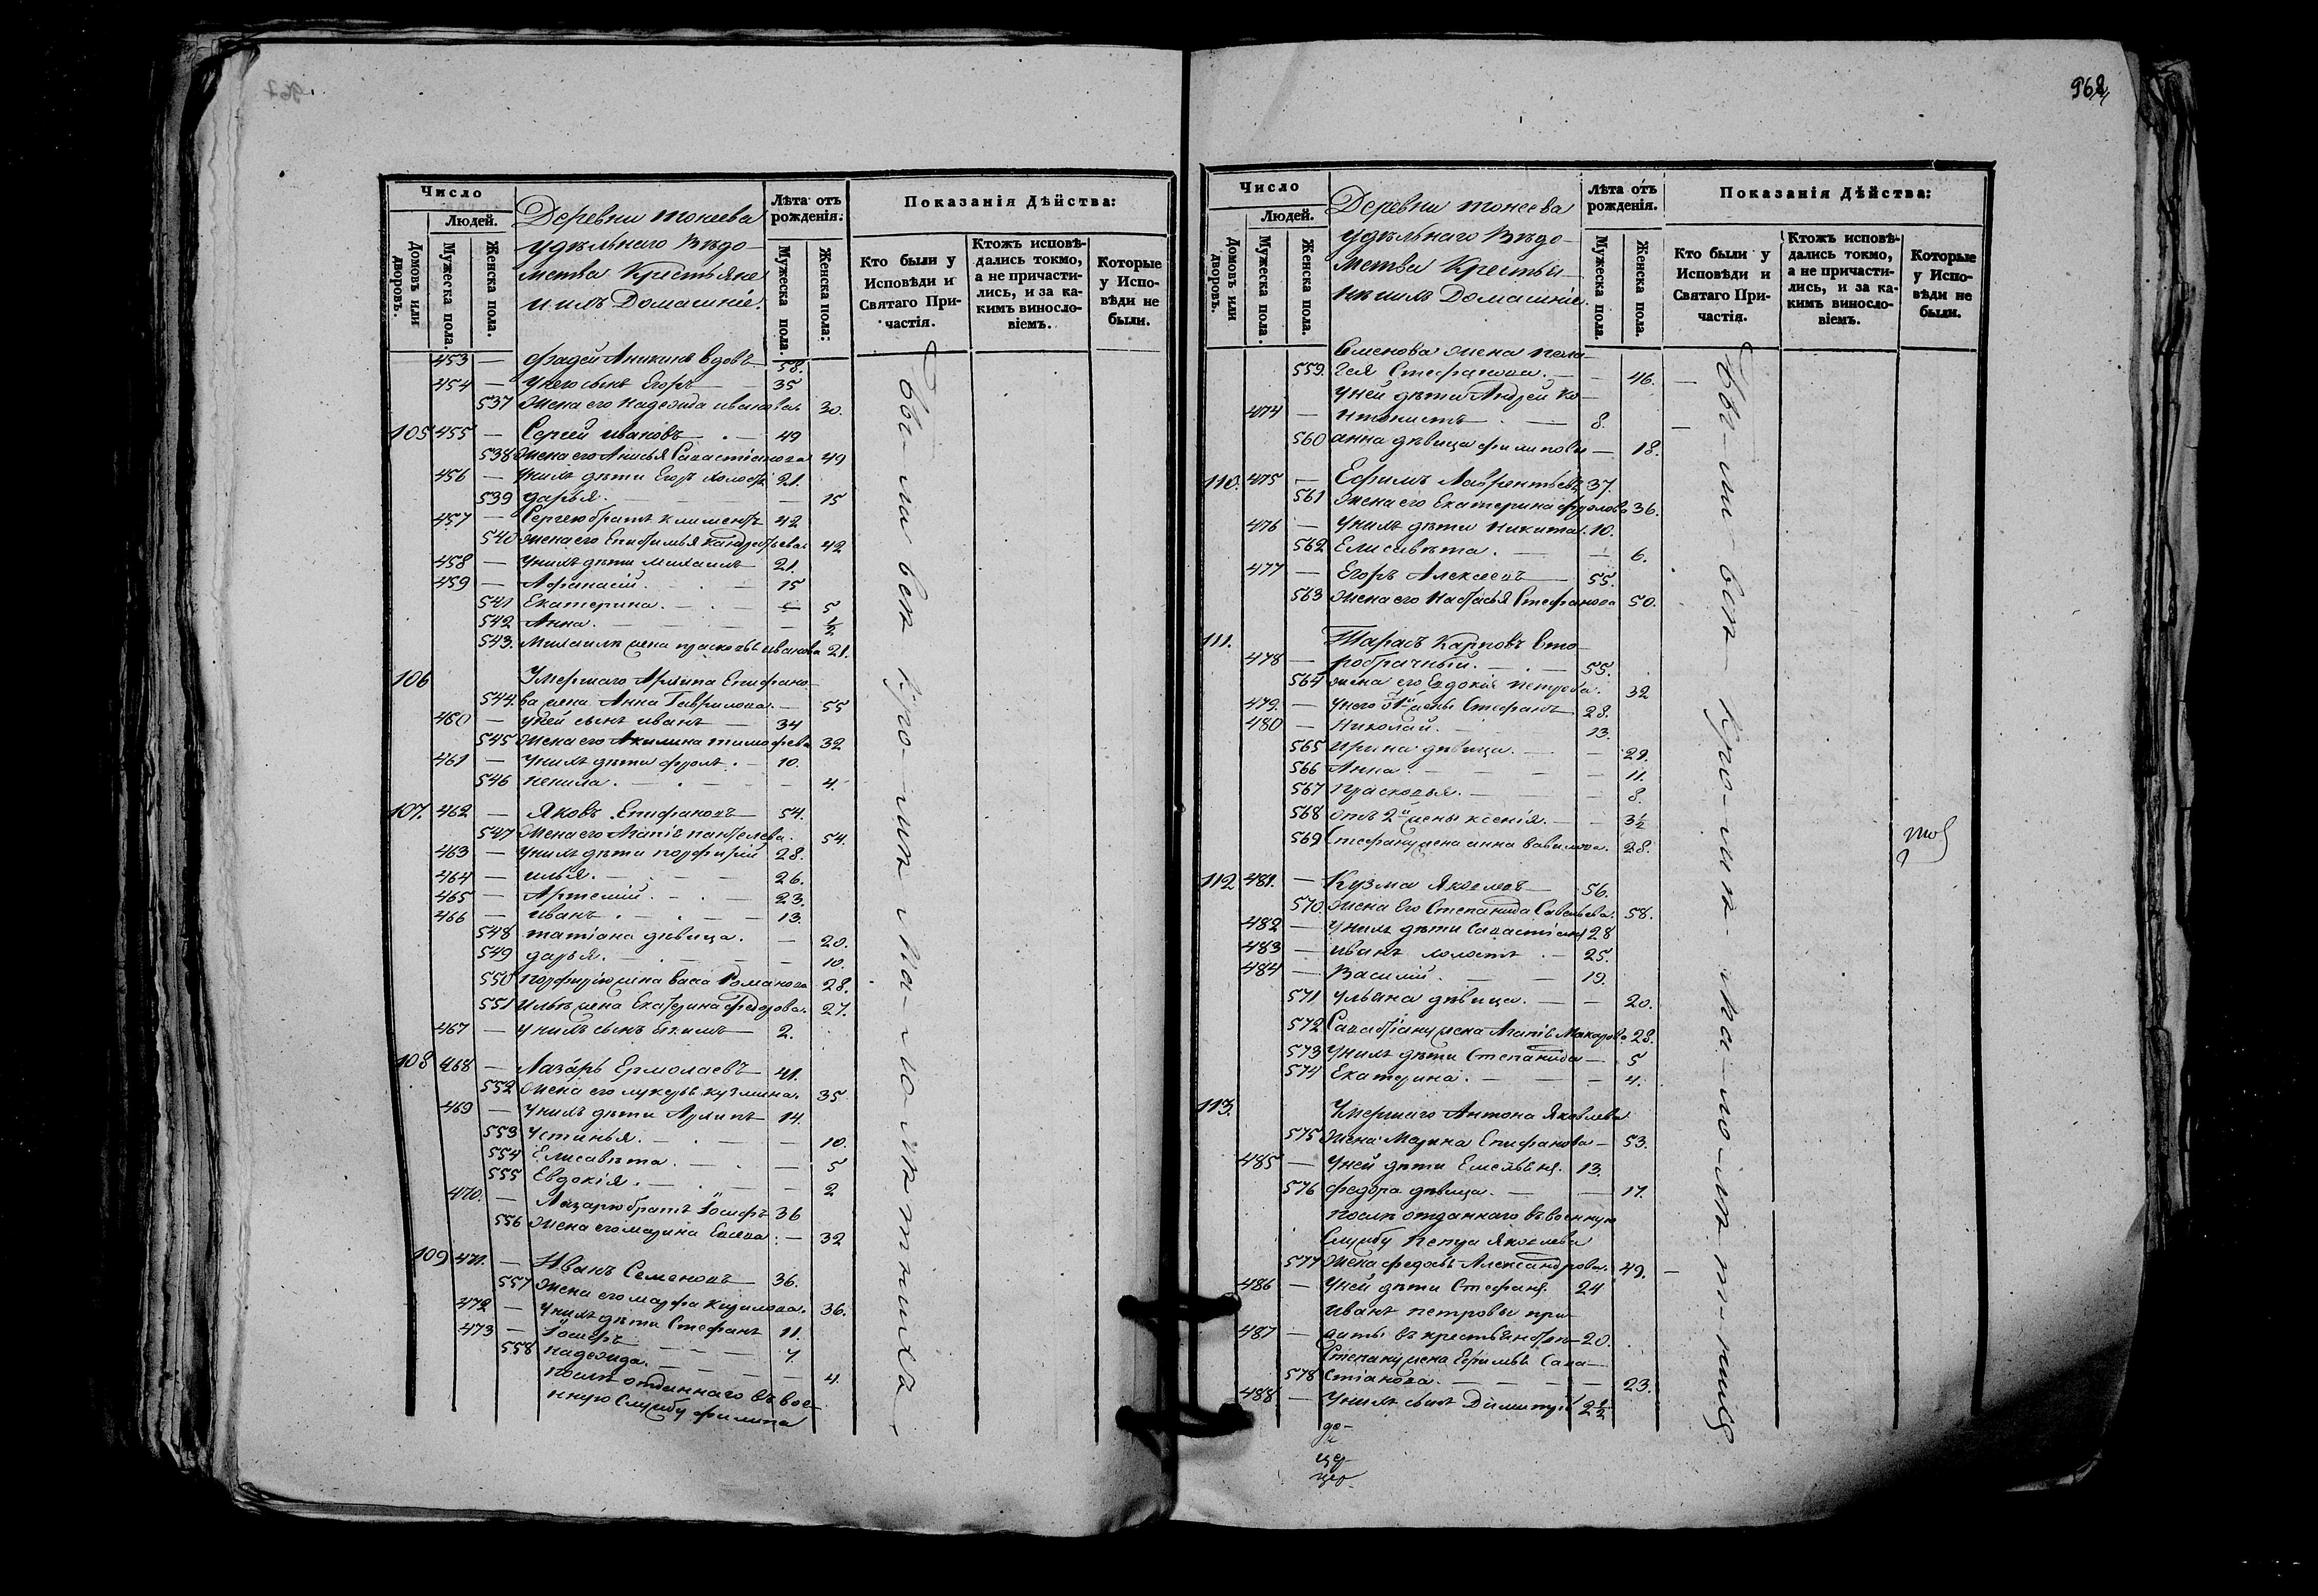 968
Число
Людей.
Домовъ или дворовъ.
Мужеска пола.
Женска пола.
Деревни Тонеева
удѣльнаго Вѣдо-
мства Крестьяне
и ихъ Домашніе.
Лѣта отъ рожденія:
Мужеска пола.
Женска пола:
Показанія Дѣйства:
Кто были у Исповѣди и Святаго При-частія.
Ктожъ исповѣ-дались токмо, а не причасти-лись, и за ка-кимъ винослο-віемъ.
Которые у Испо-вѣди не были.
453 — Фадей Аникинъ вдовъ 58.
454 — У него сынъ Егоръ — 35
537 Жена его Надежда Иванова 30.
105 455 — Сергей Ивановъ — 49
538 Жена его Анисья Савастіанова 49
456 — У нихъ дѣти Егоръ холостъ 21.
539 Дарья. — — 15
457 — Сергею братъ Климентъ 42
540 Жена его Епистимья Кандратьева 42
458 — У нихъ дѣти Михаилъ 21.
459 — Афанасій. — 15
541 Екатерина. — — 5
542 Анна. — — ½
543. Михаилы жена Прасковья Иванова 21.
106 Умершаго Архипа Епифано-
544. ва жена Анна Гаврилова. — 55
460 — У ней сынъ Иванъ — 34
545 Жена его Акилина Тимофеева 32
461 — У нихъ дѣти Фролъ. — 10.
546 Ненила. — — 4.
107. 462 — Яковъ Епифановъ — 54.
547 Жена его Агапія Пантелева. 54.
463 — У нихъ дѣти Порфирій 28.
464 — Илья. — 26.
465 — Артемій. — 23.
466 — Иванъ. — 13.
548 Татіана дѣвица. — 20.
549 Дарья. — — 10.
550 Порфирію жена Васса Романова 28.
551 Ильѣ жена Екатерина Федорова. 27.
467 — У нихъ сынъ Якимъ — 2.
108 468 — Лазарь Ермолаевъ — 41.
552 Жена его Лукерья Кузмина. 35
469 — У нихъ дѣти Архипъ 14.
553 Устинья. — — 10.
554 Елисавѣта. — — 5
555 Евдокія. — — 2
470. — Лазарю братъ Іосифъ 36
556 Жена его Марина Евсева: — 32
109 471. — Иванъ Семеновъ — 36.
557 Жена его Марфа Кирилова. 36.
472 — У нихъ дѣти Стефанъ 11.
473 — Іосифъ — 7.
558 Надежда. — — 4.
Послѣ отданнаго въ вое-
нную Службу Филипа
Бы-ли всѣ кро-мѣ ма-ло-лѣтнихъ
Число
Людей.
Домовъ или дворовъ.
Мужеска пола.
Женска пола.
Деревни Тонеева
удѣльнаго Вѣдо-
мства Крестья-
нѣ ихъ Домашніе.
Лѣта отъ рожденія.
Мужеска пола.
Женска пола.
Показанія Дѣйства:
Кто были у Исповѣди и Святаго При-частія.
Ктожъ исповѣ-дались токмо, а не причасти-лись, и за ка-кимъ винослο-віемъ.
Которые у Испо-вѣди не были.
Семенова жена Пела-
559. гея Стефанова. — — 46.
У ней дѣти Андрей Ка-
474 — нтонистъ — 8.
560 Анна дѣвица Филипова — 18.
110. 475 — Ефимъ Лаврентьевъ 37.
561 Жена его Екатерина Фролова 36.
476 — У нихъ дѣти Никита. 10.
562 Елисавѣта. — — 6.
477 — Егоръ Алексеевъ — 55.
563 Жена его Настасья Стефанова 50.
111. Тарасъ Карповъ Вто-
478 — робрачный. — 55.
564 Жена его Евдокія Петрова. 32
479. — У него отъ 1й жены Стефанъ 28.
480 — Николай. — 13.
565 Ирина дѣвица. — — 21.
566 Анна. — — 11.
567 Прасковья. — — 8.
568 Отъ 2й жены Ксенія. — — 3½
569 Стефану жена Анна Вавилова. 28.
112 481. — Кузма Яковлевъ — 56.
570. Жена Его Степанида Савельева. 58.
482 — У нихъ дѣти Савастіанъ 28
483 — Иванъ холостъ. — 25.
484 — Василій. — 19.
571 Ульяна дѣвица. — — 20.
572 Савастіану жена Агапія Макарова 28.
573 У нихъ дѣти Степанида — 5
574 Екатерина. — — 4.
113. Умершаго Антона Яковлева
575 Жена Марина Епифанова — 53.
485 — У ней дѣти Емельянъ. 13.
576 Федора дѣвица. — — 17.
Послѣ отданнаго въ военную
Службу Петра Яковлева
577 Жена Федосья Александрова. 49.
486 — У ней дѣти Стефанъ. 24
Иванъ Петровы при-
487 — няты въ крестьянство — 20.
Степану жена Ефимья Сава-
578 стіанова. — — 23.
488. — У нихъ сынъ Димитрій 2½
Бы-ли всѣ кро-мѣ ма-ло-лѣт-нихъ